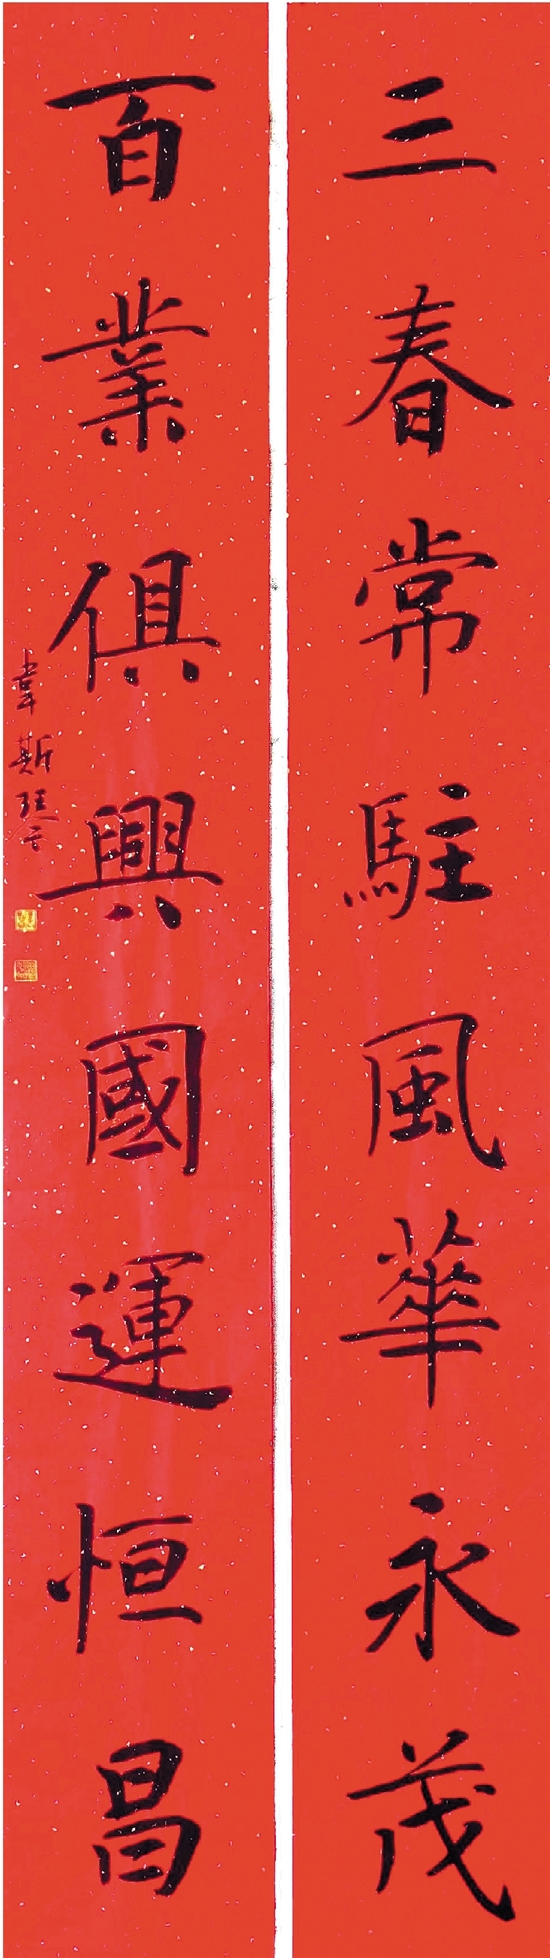 三春常駐風華永茂
百業俱興國運恒昌
韋斯琴